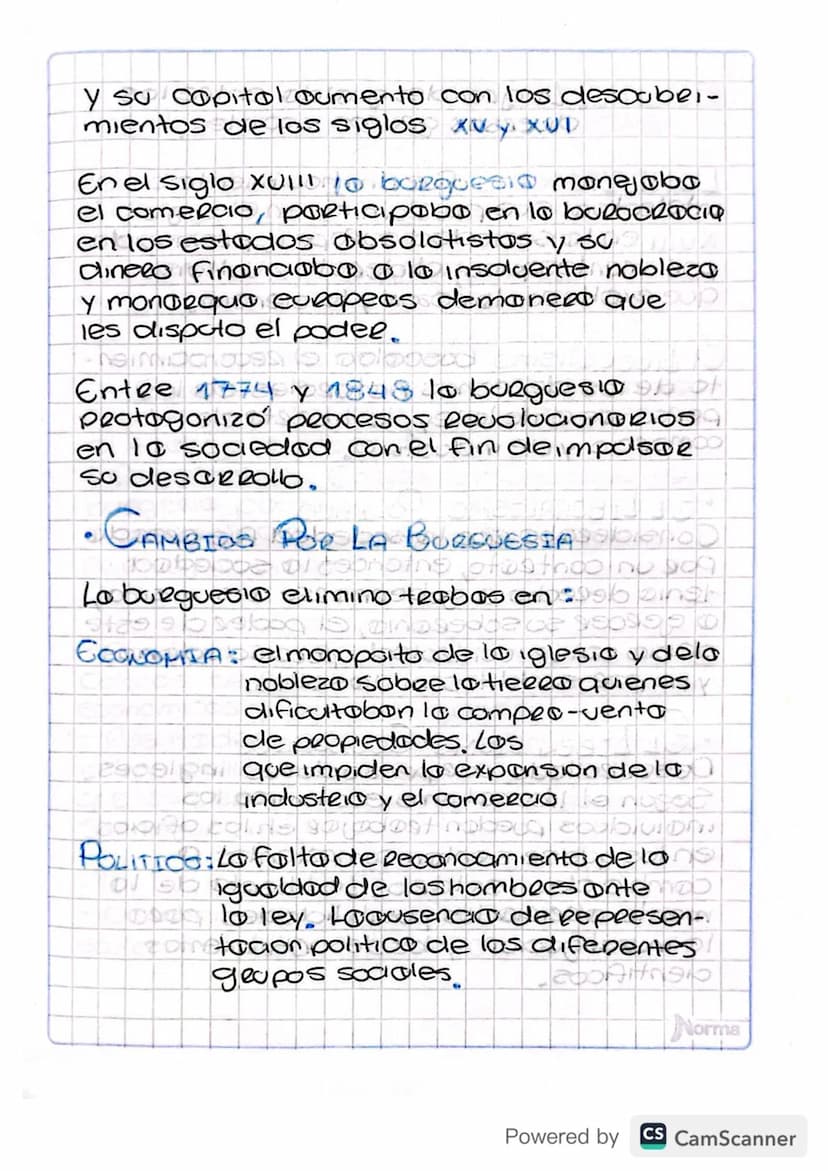 y su capital aumento con los descubri-
mientos de los siglos XV y XVI
En el siglo XVIII la burguesia manejaba
el comercio, participaba en la burocracia
en los estados absolutistas y su
dinero financiaba a la insolvente nobleza
y monarquia europeas demanera que
les disputo el poder.
Entre 1774 y 1848 la burguesia
protagonizó procesos revolucionarios
en la sociedad con el fin de impulsar
su desarrollo.
• CAMBIOS POR LA BURGUESIA
La burguesia elimino trabas en :
ECONOMIA: el de la iglesia y dela
nobleza sobre la tierra quienes
dificultaban la compra-venta
de propiedades. Los
que impiden la expansion de la
industria y el comercio
POLITICO: La falta de reconocimiento de la
igualdad de los hombres ante
la ley. La ausencia de represen-
tacion politica de los diferentes
grupos sociales.
Norma
Powered by CS CamScanner